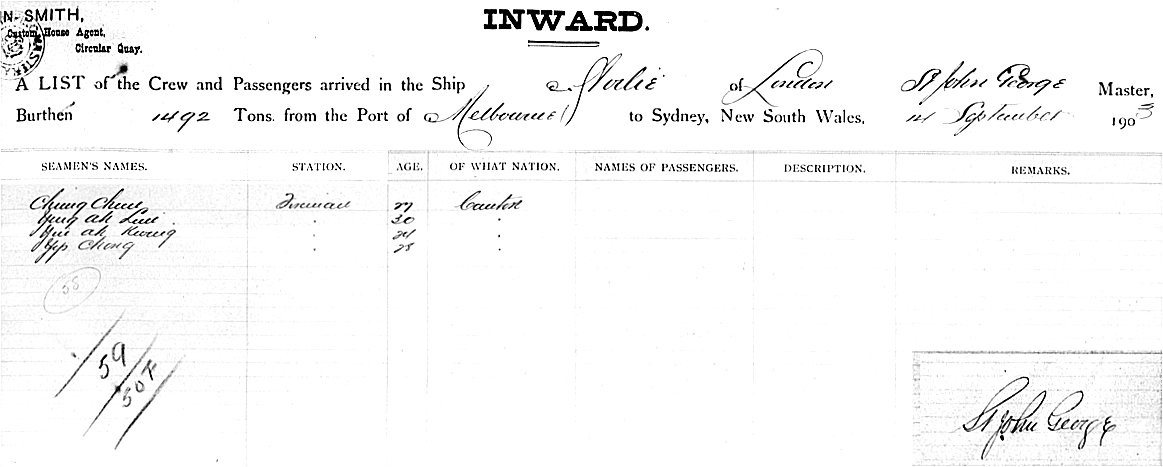 N. SMITH,
Custom House Agent,
Circular Quay.
INWARD.
A LIST of the Crew and Passengers arrived in the Ship of London St John George Master,
Burthen 1492 Tons, from the Port of Melbourne to Sydney, New South Wales, 14 September 1903
SEAMEN'S NAMES. STATION. AGE. OF WHAT NATION. NAMES OF PASSENGERS. DESCRIPTION. REMARKS.
Ching Fireman 27 Canton
Ah 30
Ah Kwong 24
Yip Chong 28
58
59
50 F
St John George